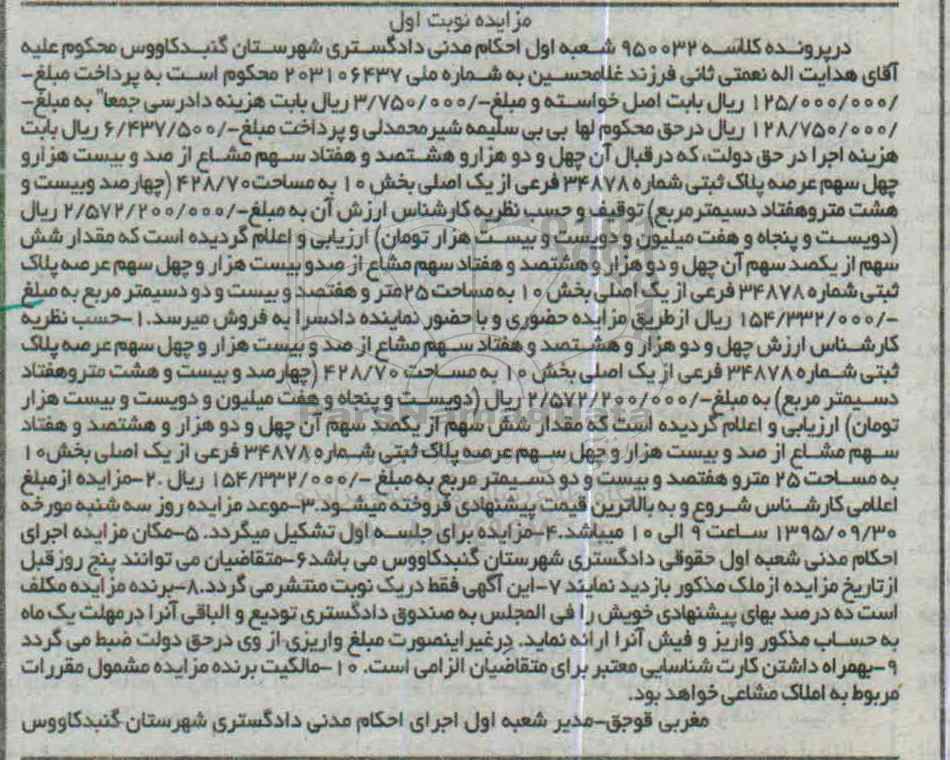 مزایده نوبت اول
درپرونده کلاسه ۹۵۰۰۳۲ شعبه اول احکام مدنی دادگستری شهرستان گنبدکاووس محکوم علیه
آقای هدایت اله نعمتی ثانی فرزند غلامحسین به شماره ملی ۲۰۳۱۰۶۴۳۷ محکوم است به پرداخت مبلغ-
/۱۲۵/۰۰۰/۰۰۰ ریال بابت اصل خواسته و مبلغ-/۳/۷۵۰/۰۰۰ ریال بابت هزینه دادرسی جمعا" به مبلغ-
/۱۲۸/۷۵۰/۰۰۰ ریال درحق محکوم لها بی بی سلیمه شیرمحمدلی و پرداخت مبلغ-/۶/۴۳۷/۵۰۰ ریال بابت
هزینه اجرا در حق دولت، که درقبال آن چهل و دو هزارو هشتصد و هفتاد سهم مشاع از صد و بیست هزارو
چهل سهم عرصه پلاک ثبتی شماره ۳۴۸۷۸ فرعی از یک اصلی بخش ۱۰ به مساحت۴۲۸/۷۰ (چهارصد وبیست و
هشت متروهفتاد دسیمترمربع) توقیف و حسب نظریه کارشناس ارزش آن به مبلغ-/۲/۵۷۲/۲۰۰/۰۰۰ ریال
(دویست و پنجاه و هفت میلیون و دویست و بیست هزار تومان) ارزیابی و اعلام گردیده است که مقدار شش
سهم از یکصد سهم آن چهل و دو هزار و هشتصد و هفتاد سهم مشاع از صدو بیست هزار و چهل سهم عرصه پلاک
ثبتی شماره ۳۴۸۷۸ فرعی از یک اصلی بخش ۱۰ به مساحت ۲۵متر و هفتصد و بیست و دو دسیمتر مربع به مبلغ
-/۱۵۴/۳۳۲/۰۰۰ ریال ازطریق مزایده حضوری و با حضور نماینده دادسرا به فروش میرسد.۱-حسب نظریه
کارشناس ارزش چهل و دو هزار و هشتصد و هفتاد سهم مشاع از صد و بیست هزار و چهل سهم عرصه پلاک
ثبتی شماره ۳۴۸۷۸ فرعی از یک اصلی بخش ۱۰ به مساحت ۴۲۸/۷۰ (چهارصد و بیست و هشت متروهفتاد
دسیمتر مربع) به مبلغ-/۲/۵۷۲/۲۰۰/۰۰۰ ریال (دویست و پنجاه و هفت میلیون و دویست و بیست هزار
تومان) ارزیابی و اعلام گردیده است که مقدار شش سهم از یکصد سهم آن چهل و دو هزار و هشتصد و هفتاد
سهم مشاع از صد و بیست هزار و چهل سهم عرصه پلاک ثبتی شماره ۳۴۸۷۸ فرعی از یک اصلی بخش۱۰
به مساحت ۲۵ مترو هفتصد و بیست و دو دسیمتر مربع به مبلغ -/۱۵۴/۳۳۲/۰۰۰ ریال .۲-مزایده ازمبلغ
اعلامی کارشناس شروع و به بالاترین قیمت پیشنهادی فروخته میشود.۳-موعد مزایده روز سه شنبه مورخه
۱۳۹۵/۰۹/۳۰ ساعت ۹ الی ۱۰ میباشد.۴-مزایده برای جلسه اول تشکیل میگردد. ۵-مکان مزایده اجرای
احکام مدنی شعبه اول حقوقی دادگستری شهرستان گنبدکاووس می باشد۶-متقاضیان می توانند پنج روزقبل
ازتاریخ مزایده ازملک مذکور بازدید نمایند ۷-این آگهی فقط دریک نوبت منتشرمی گردد.۸-برنده مزایده مکلف
است ده درصد بهای پیشنهادی خویش را فی المجلس به صندوق دادگستری تودیع و الباقی آنرا درمهلت یک ماه
به حساب مذکور واریز و فیش آنرا ارائه نماید. درغیراینصورت مبلغ واریزی از وی درحق دولت ضبط می گردد
۹-بهمراه داشتن کارت شناسایی معتبر برای متقاضیان الزامی است. ۱۰-مالکیت برنده مزایده مشمول مقررات
مربوط به املاک مشاعی خواهد بود.
مغربی قوجق-مدیر شعبه اول اجرای احکام مدنی دادگستری شهرستان گنبدکاووس